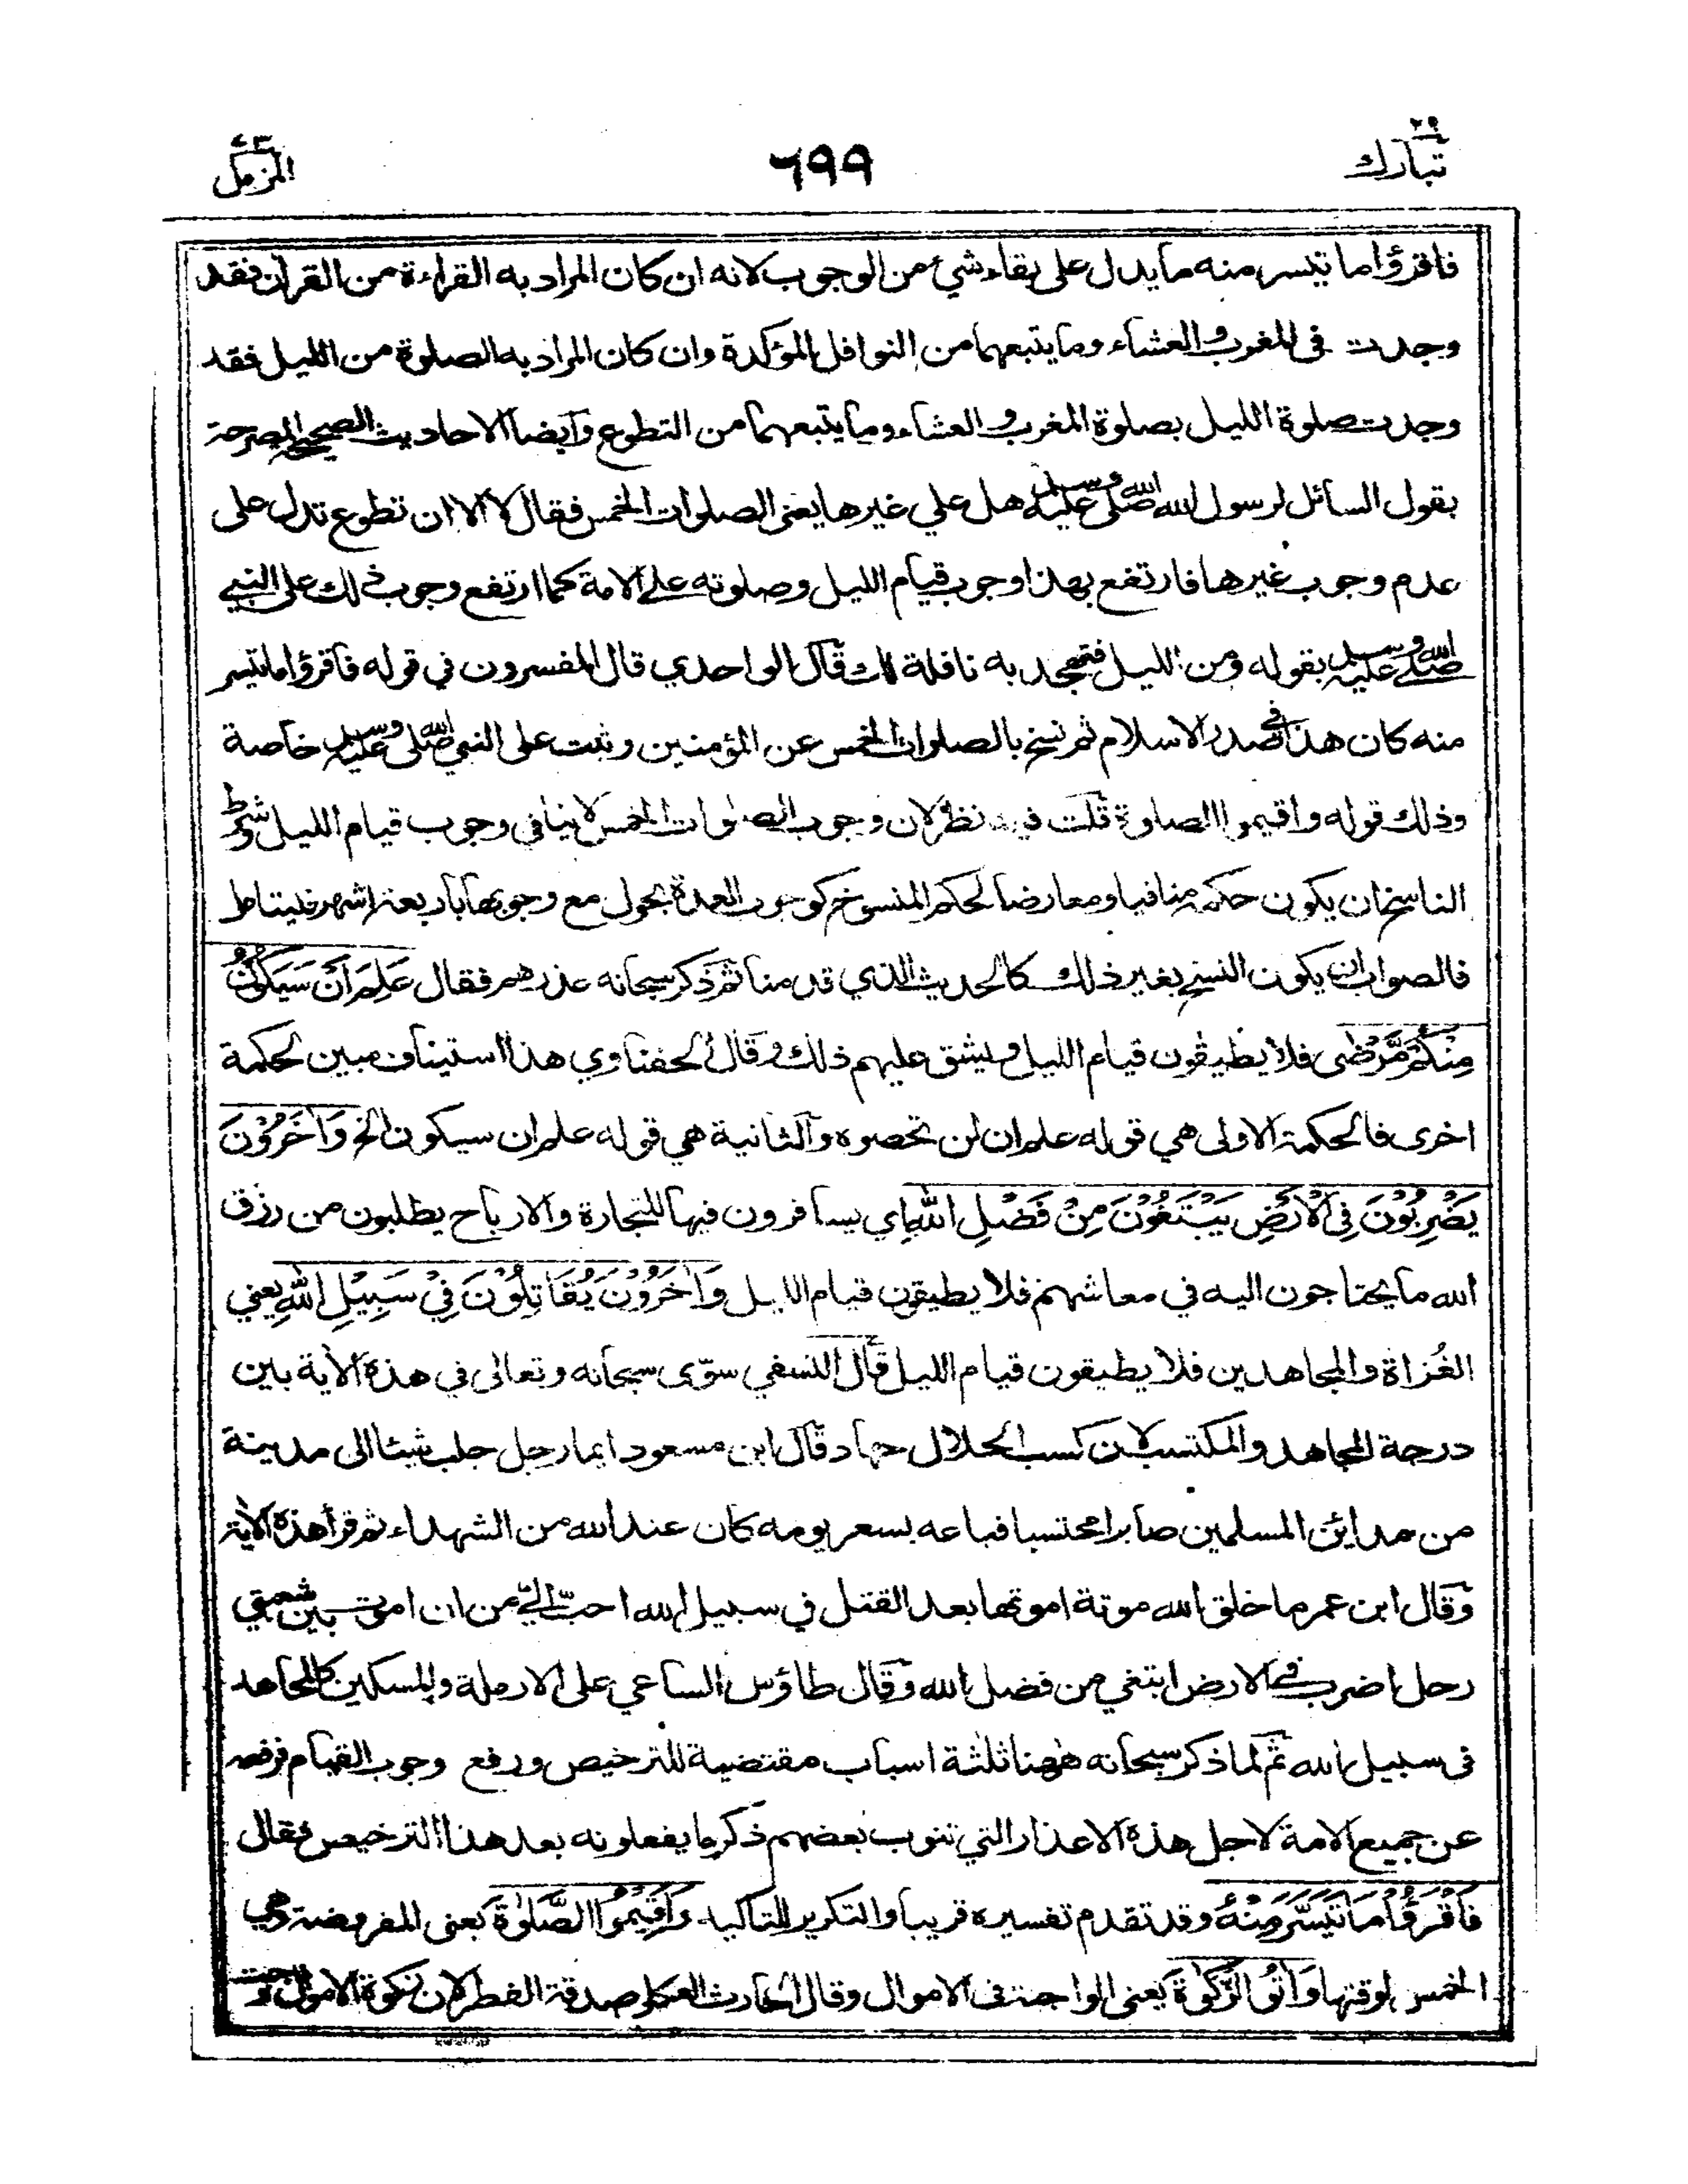 تبارك ٢٩
٦٩٩
المزمل ٧٣
فاقرؤا ما تيسر منه ما يدل على بقاء شيئ من الوجوب لانه ان كان المراد به القراءة من القرآن فقد
وجدت في المغرب والعشاء وما يتبعهما من النوافل المؤكدة وان كان المراد به الصلوة من الليل فقد
وجدت صلوة الليل بصلوة المغرب والعشاء وما يتبعهما من التطوع وايضا الاحاديث الصحيحة المصرحة
بقول السائل لرسول الله صلى الله عليه وسلم هل علي غيرها يعني الصلوات الخمس فقال لا الا ان تطوع تدل على
عدم وجوب غيرها فارتفع بهذا وجوب قيام الليل وصلوته على الامة كما ارتفع وجوب ذلك على النبي
صلى الله عليه وسلم بقوله ومن الليل فتهجد به نافلة لك قال الواحدي قال المفسرون في قوله فاقرؤا ما تيسر
منه كان هذا في صدر الاسلام ثم نسخ بالصلوات الخمس عن المؤمنين وثبت على النبي صلى الله عليه وسلم خاصة
وذلك قوله واقيموا الصلوة قلت فيه نظر لان وجوب الصلوات الخمس لا ينافي وجوب قيام الليل وشرط
الناسخ ان يكون حكمه منافيا ومعارضا لحكم المنسوخ كوجوب العدة بحول مع وجوبها باربعة اشهر فيناط
فالصواب ان يكون النسخ بغير ذلك كالحديث الذي قدمنا ثم ذكر سبحانه عذرهم فقال عَلِمَ اَنْ سَيَكُوْنُ
مِنْكُمْ مَّرْضٰى فلا يطيقون قيام الليل ويشق عليهم ذلك وقال الحفناوي هذا استيناف مبين لحكمة
اخرى فالحكمة الاولى هي قوله علم ان لن تحصوه والثانية هي قوله علم ان سيكون الخ وَاٰخَرُوْنَ
يَضْرِبُوْنَ فِى الْاَرْضِ يَبْتَغُوْنَ مِنْ فَضْلِ اللّٰهِ اي يسافرون فيها للتجارة والارباح يطلبون من رزق
الله ما يحتاجون اليه في معاشهم فلا يطيقون قيام الليل وَاٰخَرُوْنَ يُقَاتِلُوْنَ فِيْ سَبِيْلِ اللّٰهِ يعني
الغُزاة والمجاهدين فلا يطيقون قيام الليل قال النسفي سوّى سبحانه وتعالى في هذه الاٰية بين
درجة المجاهد والمكتسب لان كسب الحلال جهاد قال ابن مسعود ايما رجل جلب شيئا الى مدينة
من مدائن المسلمين صابرا محتسبا فباعه بسعر يومه كان عند الله من الشهداء ثم قرأ هذه الاٰية
وقال ابن عمر ما خلق الله موتة اموتها بعد القتل في سبيل الله احبّ اليّ من ان اموت بين شعبتي
رحل اضرب في الارض ابتغي من فضل الله وقال طاؤس الساعي على الارملة والمسكين كالمجاهد
في سبيل الله ثم لما ذكر سبحانه هٰهنا ثلٰثة اسباب مقتضية للترخيص ورفع وجوب القيام فرفعه
عن جميع الامة لاجل هذه الاعذار التي تنوب بعضهم ذكر ما يفعلونه بعد هذا الترخيص فقال
فَاقْرَؤُا مَا تَيَسَّرَ مِنْهُ وقد تقدم تفسيره قريبا والتكرير للتاكيد وَاَقِيْمُوا الصَّلٰوةَ يعني المفروضة وهي
الخمس لوقتها وَاٰتُوا الزَّكٰوةَ يعني الواجبة في الاموال وقال الحارث العكلي صدقة الفطر لان زكوة الاموال وجبت